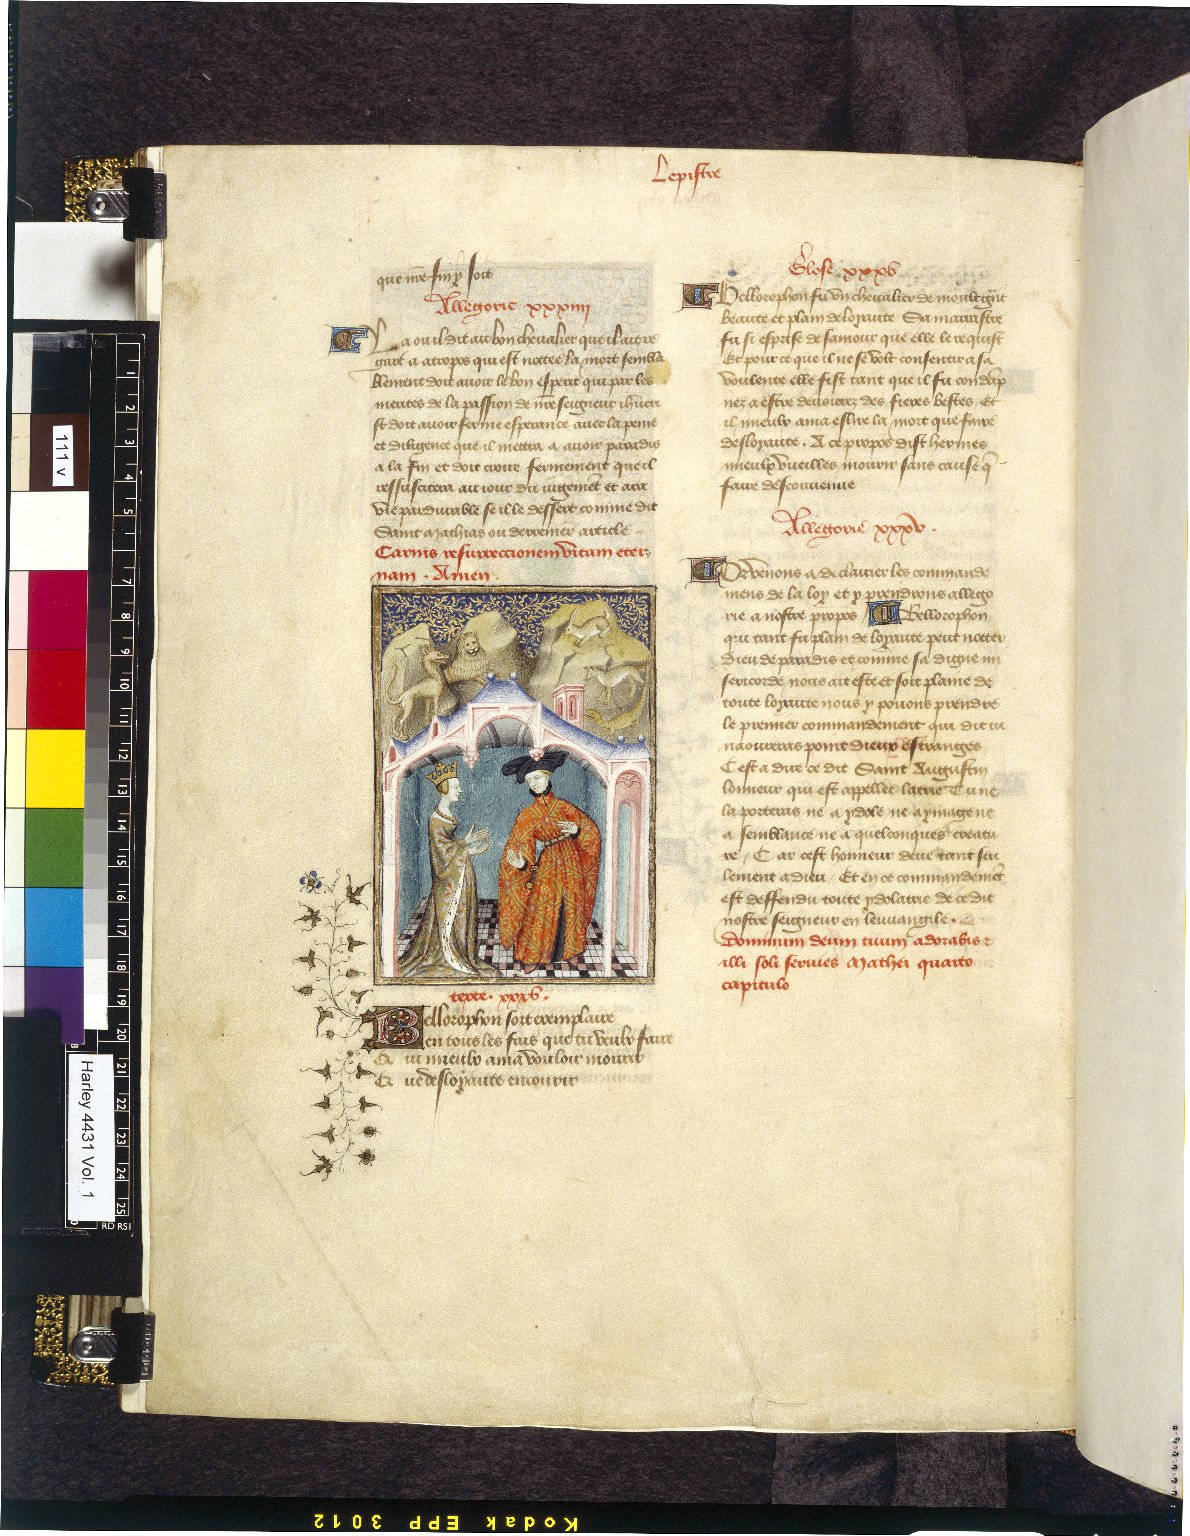 Lepistre
que nre fin soit
Allegorie xxxiiii
La ou il dit au bon chevalier que il ait re
gart a atropos qui est nottee la mort sembla
blement doit avoir le bon esperit qui par les
merites de la passion de nre seigneur ihucri
st doit avoir ferme esperance avec la peine
et diligence que il mettra a avoir paradis
a la fin et doit croire fermement que il
ressuscitera au iour du iugement et ara
vie pardurable se il le dessert comme dit
Saint Mathias ou derrenier article
Carnis resurreccionem vitam eter
nam . Amen .
texte . xxxv .
Bellorophon soit exemplaire
en tous les fais que tu veulx faire
Qui mieulx ama vouloir mourir
Que desloyaute encourir
Glose xxxv
Bellorophon fu un chevalier de moult grant
beaute et plain de loyaute Sa marrastre
fu si esprise de samour que elle le requist
Et pour ce que il ne se volt consentir a sa
voulente elle fist tant que il fu condamp
nez a estre devourez des fieres bestes Et
il mieulx ama eslire la mort que faire
desloyaute . A ce propos dist hermes
mieulx vueilles mourir sans cause q
faire desconvenue
Allegorie xxxv .
Or venons a declairier les commande
mens de la loy et y prendrons allego
rie a nostre propos / Bellorophon
qui tant fu plain de loyaute peut notter
dieu de paradis et comme sa digne mi
sericorde nous ait este et soit plaine de
toute loyaute nous y povons prendre
le premier commandement qui dit tu
naoureras point dieux estranges
C est a dire ce dit Saint Augustin
lonneur qui est appellee latrie Tu ne
la porteras ne a ydole ne a ymage ne
a semblance ne a quelconques creatu
re / C ar cest honneur deue tant seu
lement a dieu / Et en ce commandement
est deffendu toute ydolatrie de ce dit
nostre seigneur en leuvangile .
Dominum deum tuum adorabis z
illi soli servies Mathei quarto
capitulo
111 v
Harley 4431 Vol. 1
Kodak EPP 3012